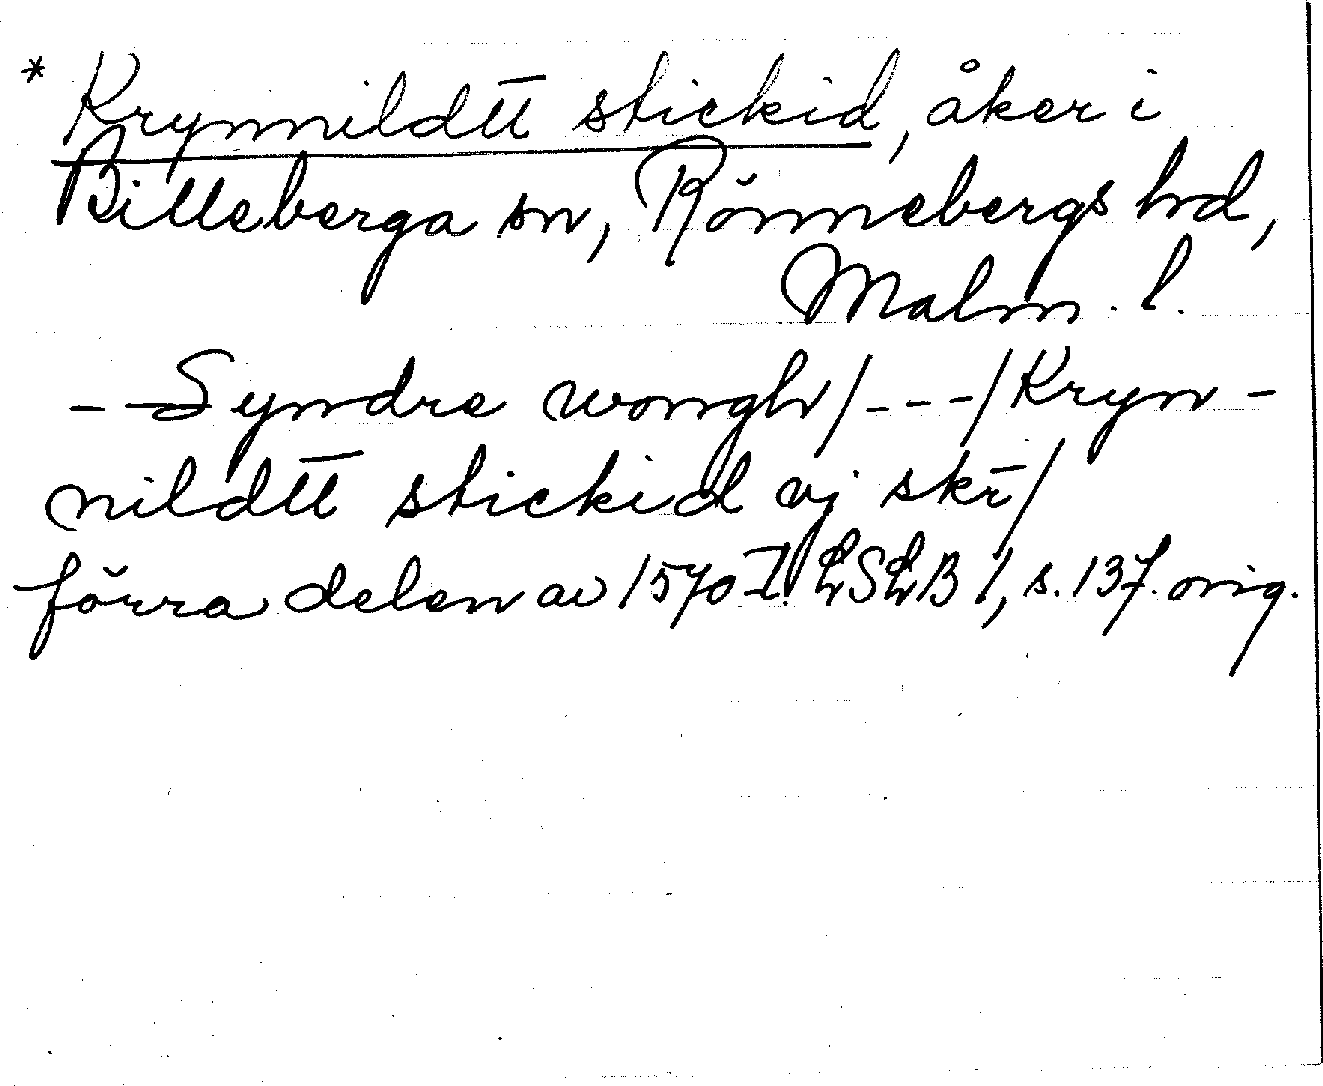 * Krynnildtt̅ stickid, åker i
Billeberga sn, Rönnebergs hd,
Malm. l.
– – Syndre wongh / – – – / Kryn –
nildtt̅ stickid vj skr̅ /
förra delen av 1570-t. LSLB 1, s. 137. orig.